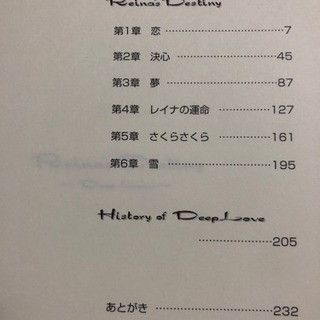 Reina's Destiny
第1章 恋 ………………………… 7
第2章 決心 ……………………… 45
第3章 夢 ………………………… 87
第4章 レイナの運命 ………… 127
第5章 さくらさくら ………… 161
第6章 雪 ……………………… 195
History of Deep Love
………………… 205
あとがき ……………………… 232